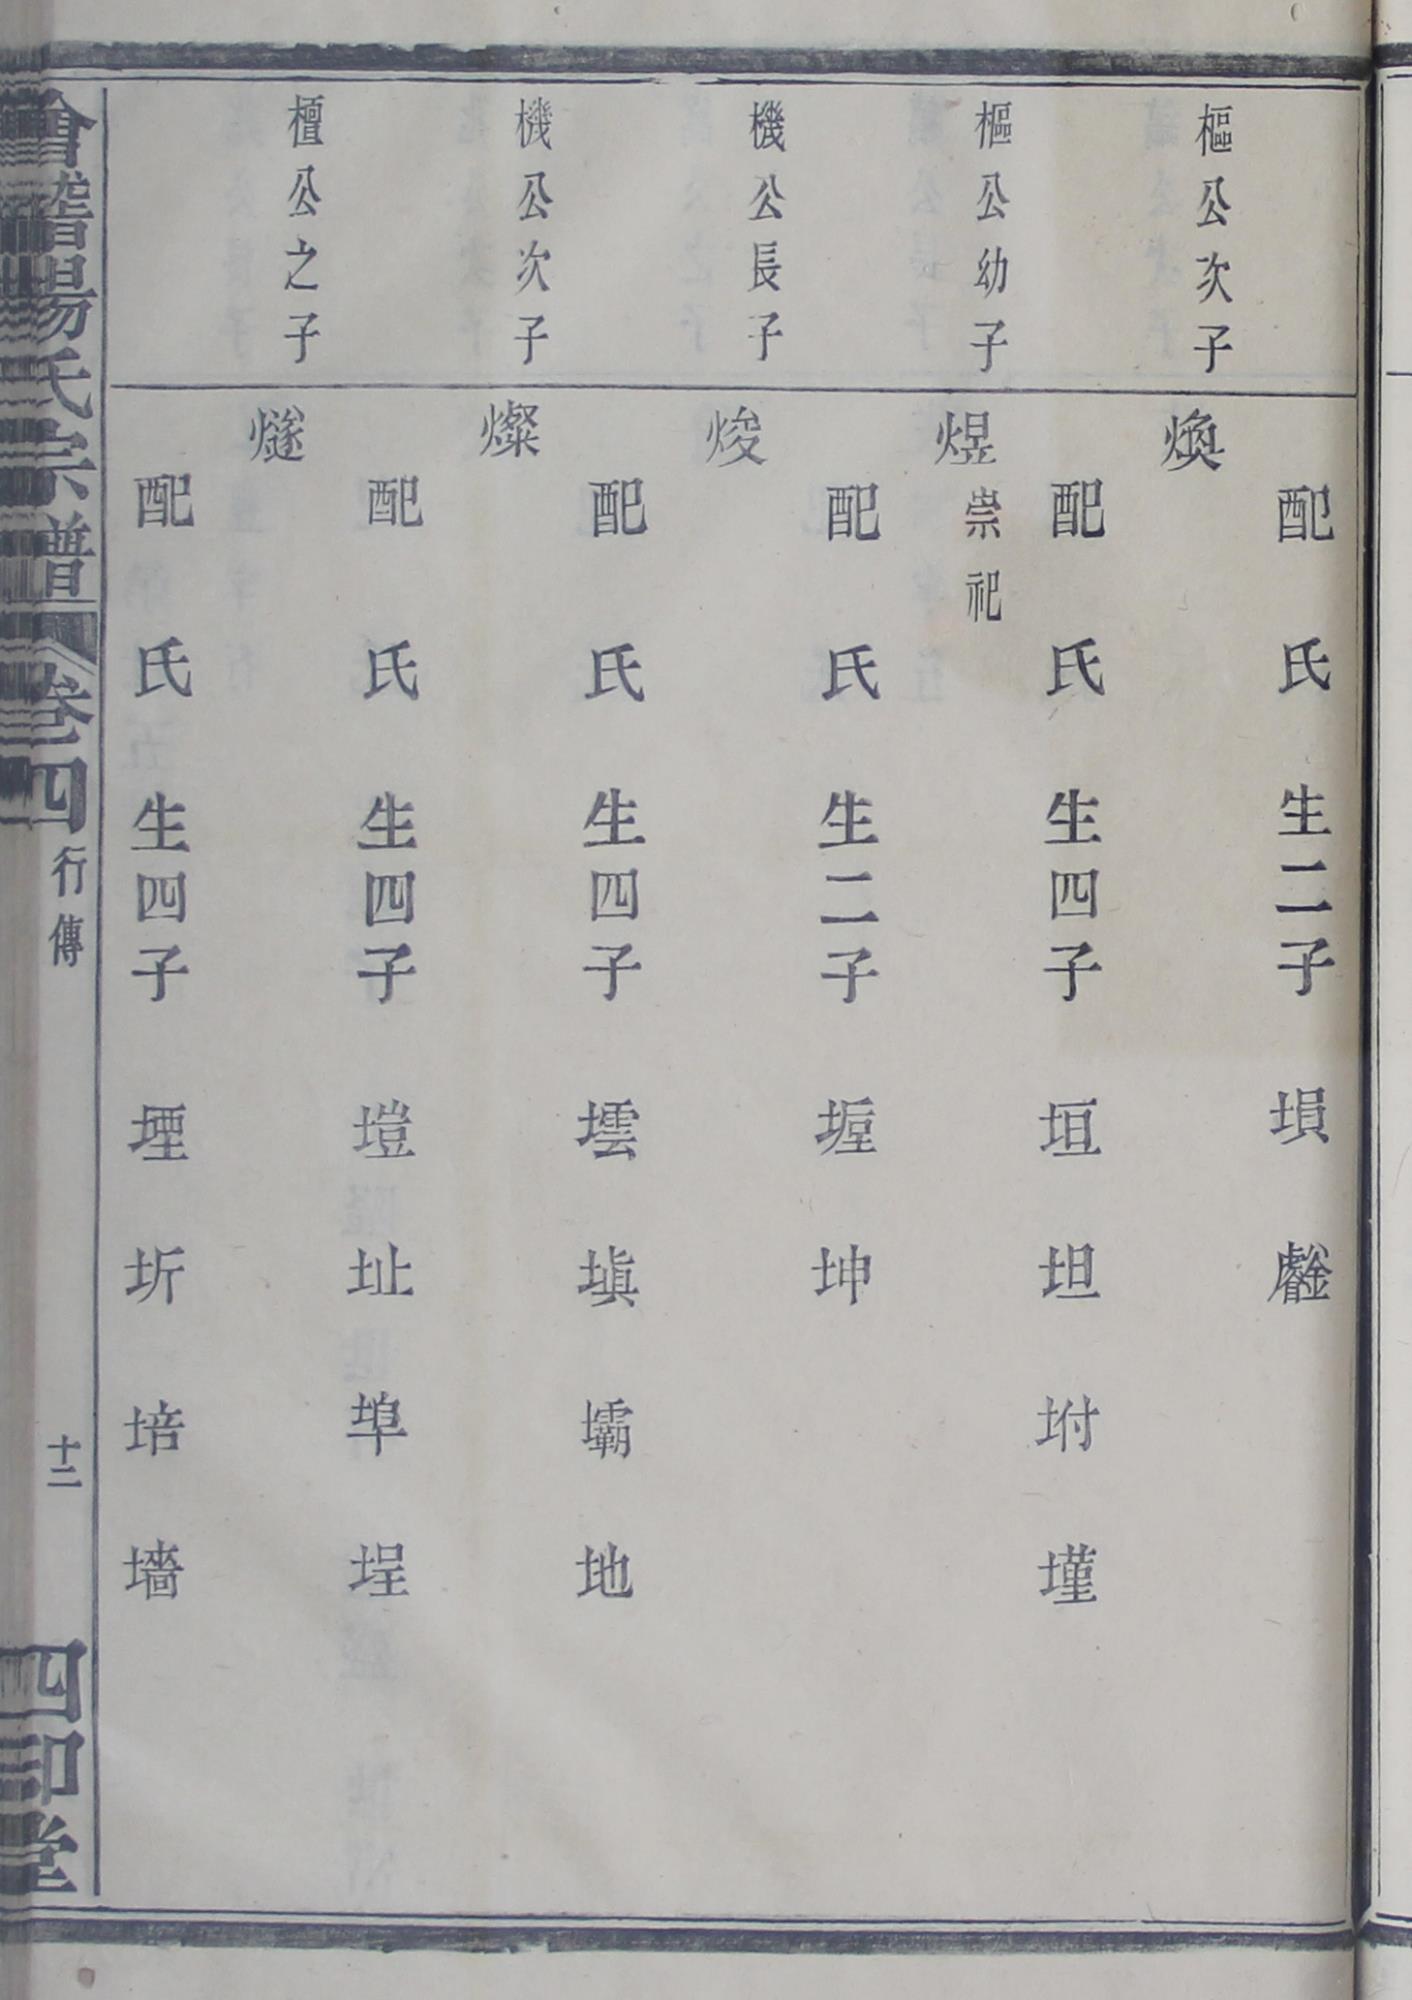 配 氏 生二子 塤
樞公次子 煥
配 氏 生四子 垣 坦 坿 墐
樞公幼子 煜 崇祀
配 氏 生二子 坤
機公長子 焌
配 氏 生四子 塡 壩 地
機公次子 燦
配 氏 生四子 塏 址 埠 埕
檀公之子 燧
配 氏 生四子 堙 圻 培 墻
會稽楊氏宗譜 卷四 行傳 十二 四印堂